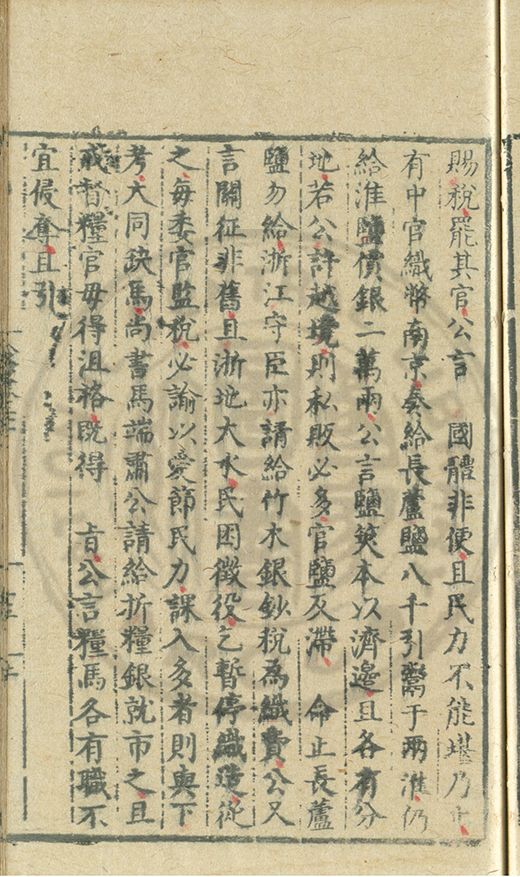 賜稅罷其官公言　國體非便且民力不能堪乃止
有中官織幣南京奏給長蘆鹽八千引鬻于兩淮仍
給淮鹽價銀二萬兩公言鹽筴本以濟邊且各有分
地若公許越境則私販必多官鹽反滯　命止長蘆
鹽勿給浙江守臣亦請給竹木銀鈔稅為織費公又
言關征非舊且浙地大水民困徵役乞暫停織造從
之每委官監稅必諭以愛節民力課入多者則輿下
考大同缺馬尚書馬端肅公請給折糧銀就市之且
戒督糧官毋得沮格既得　旨公言糧馬各有職不
宜侵奪且引